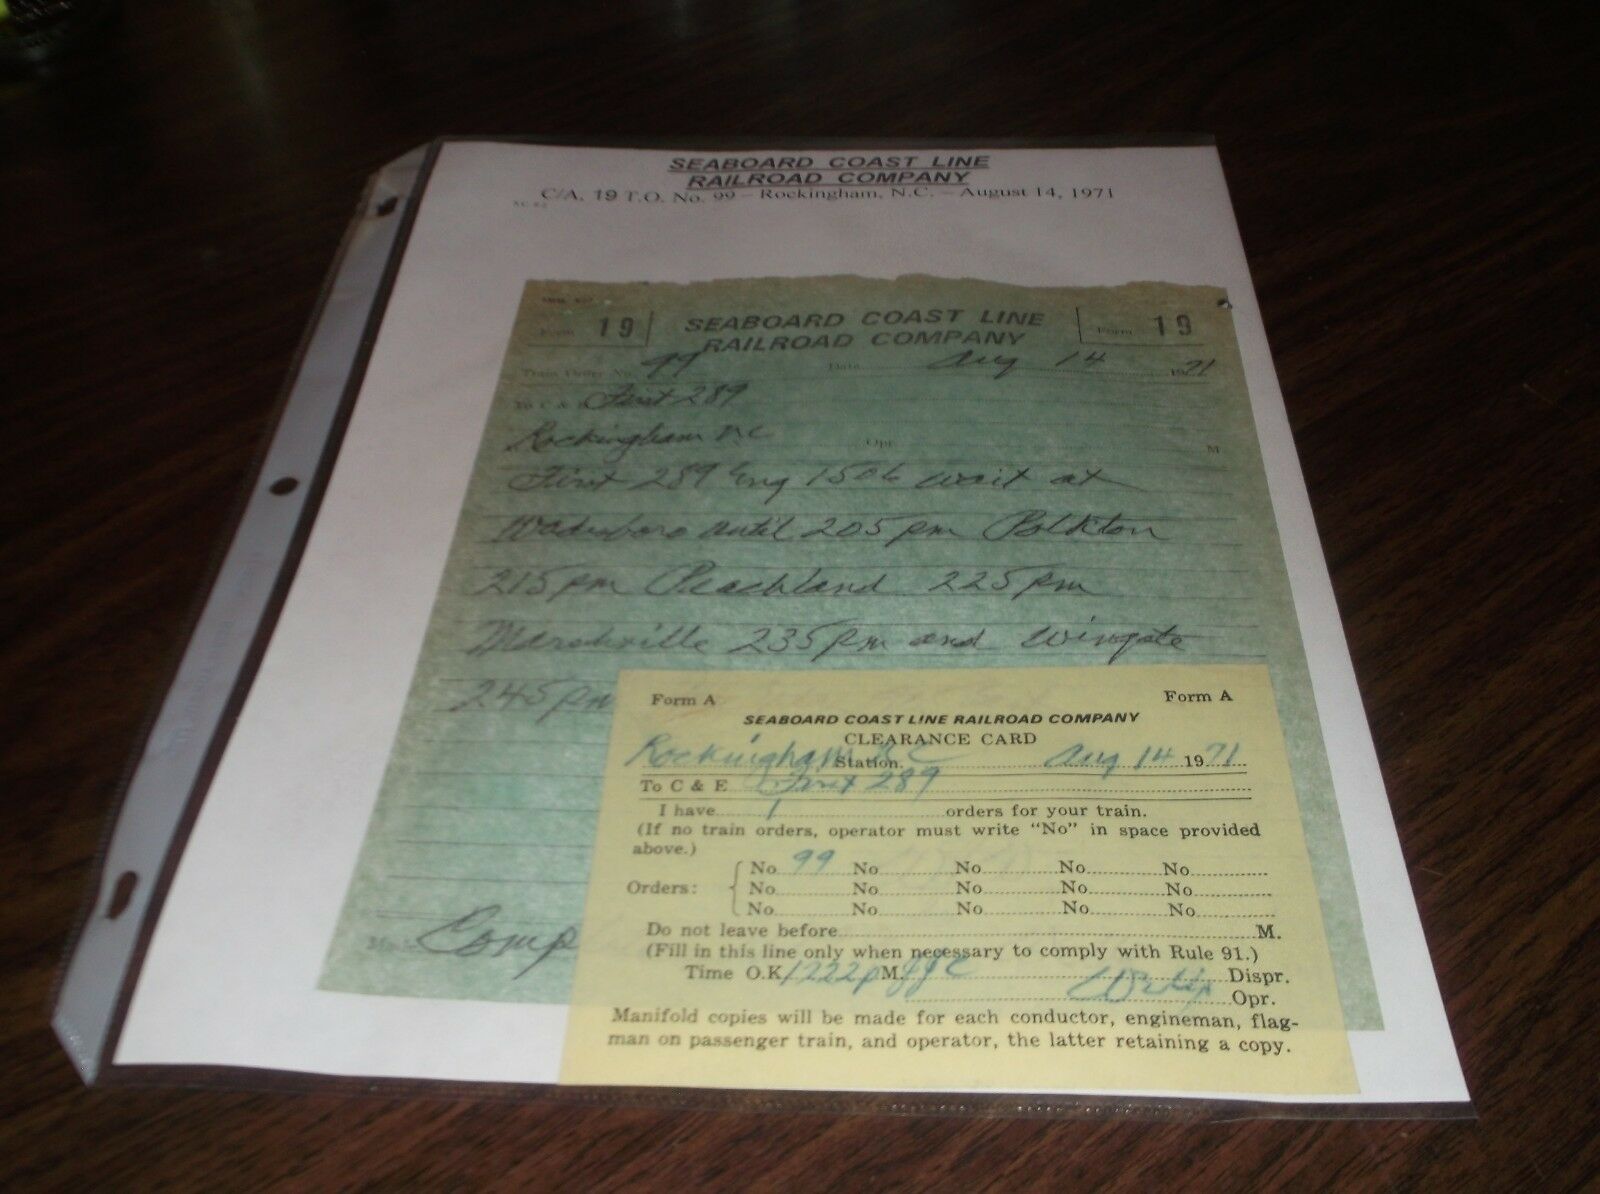 SEABOARD COAST LINE
RAILROAD COMPANY
C/A, 19 T.O. No. 99 – Rockingham, N.C. – August 14, 1971
Form 19 SEABOARD COAST LINE Form 19
RAILROAD COMPANY
Train Order No. 99 Date Aug 14 1971
To C & E First 289
Rockingham NC Opr. M
First 289 Eng 1506 wait at
Wadesboro until 205 pm Polkton
215 pm Peachland 225 pm
Marshville 235 pm and Wingate
245 pm
Comp
Form A Form A
SEABOARD COAST LINE RAILROAD COMPANY
CLEARANCE CARD
Rockingham N C Station. Aug 14 1971
To C & E First 289
I have 1 orders for your train.
(If no train orders, operator must write "No" in space provided
above.)
No 99 No No No No
Orders: No No No No No
No No No No No
Do not leave before M.
(Fill in this line only when necessary to comply with Rule 91.)
Time O.K. 1222 p M. JJC Dispr.
Opr.
Manifold copies will be made for each conductor, engineman, flag-
man on passenger train, and operator, the latter retaining a copy.